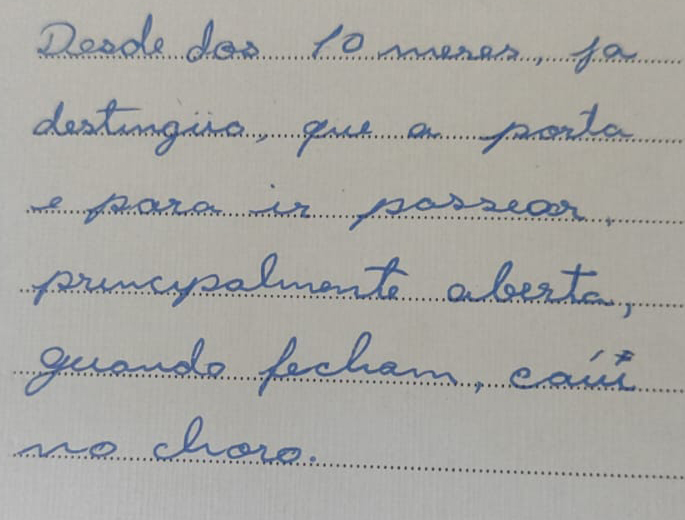 Desde dos 10 meses, ja
destingüio, que a porta
e para ir passear,
principalmente aberta,
quando fecham, caíi
no choro.